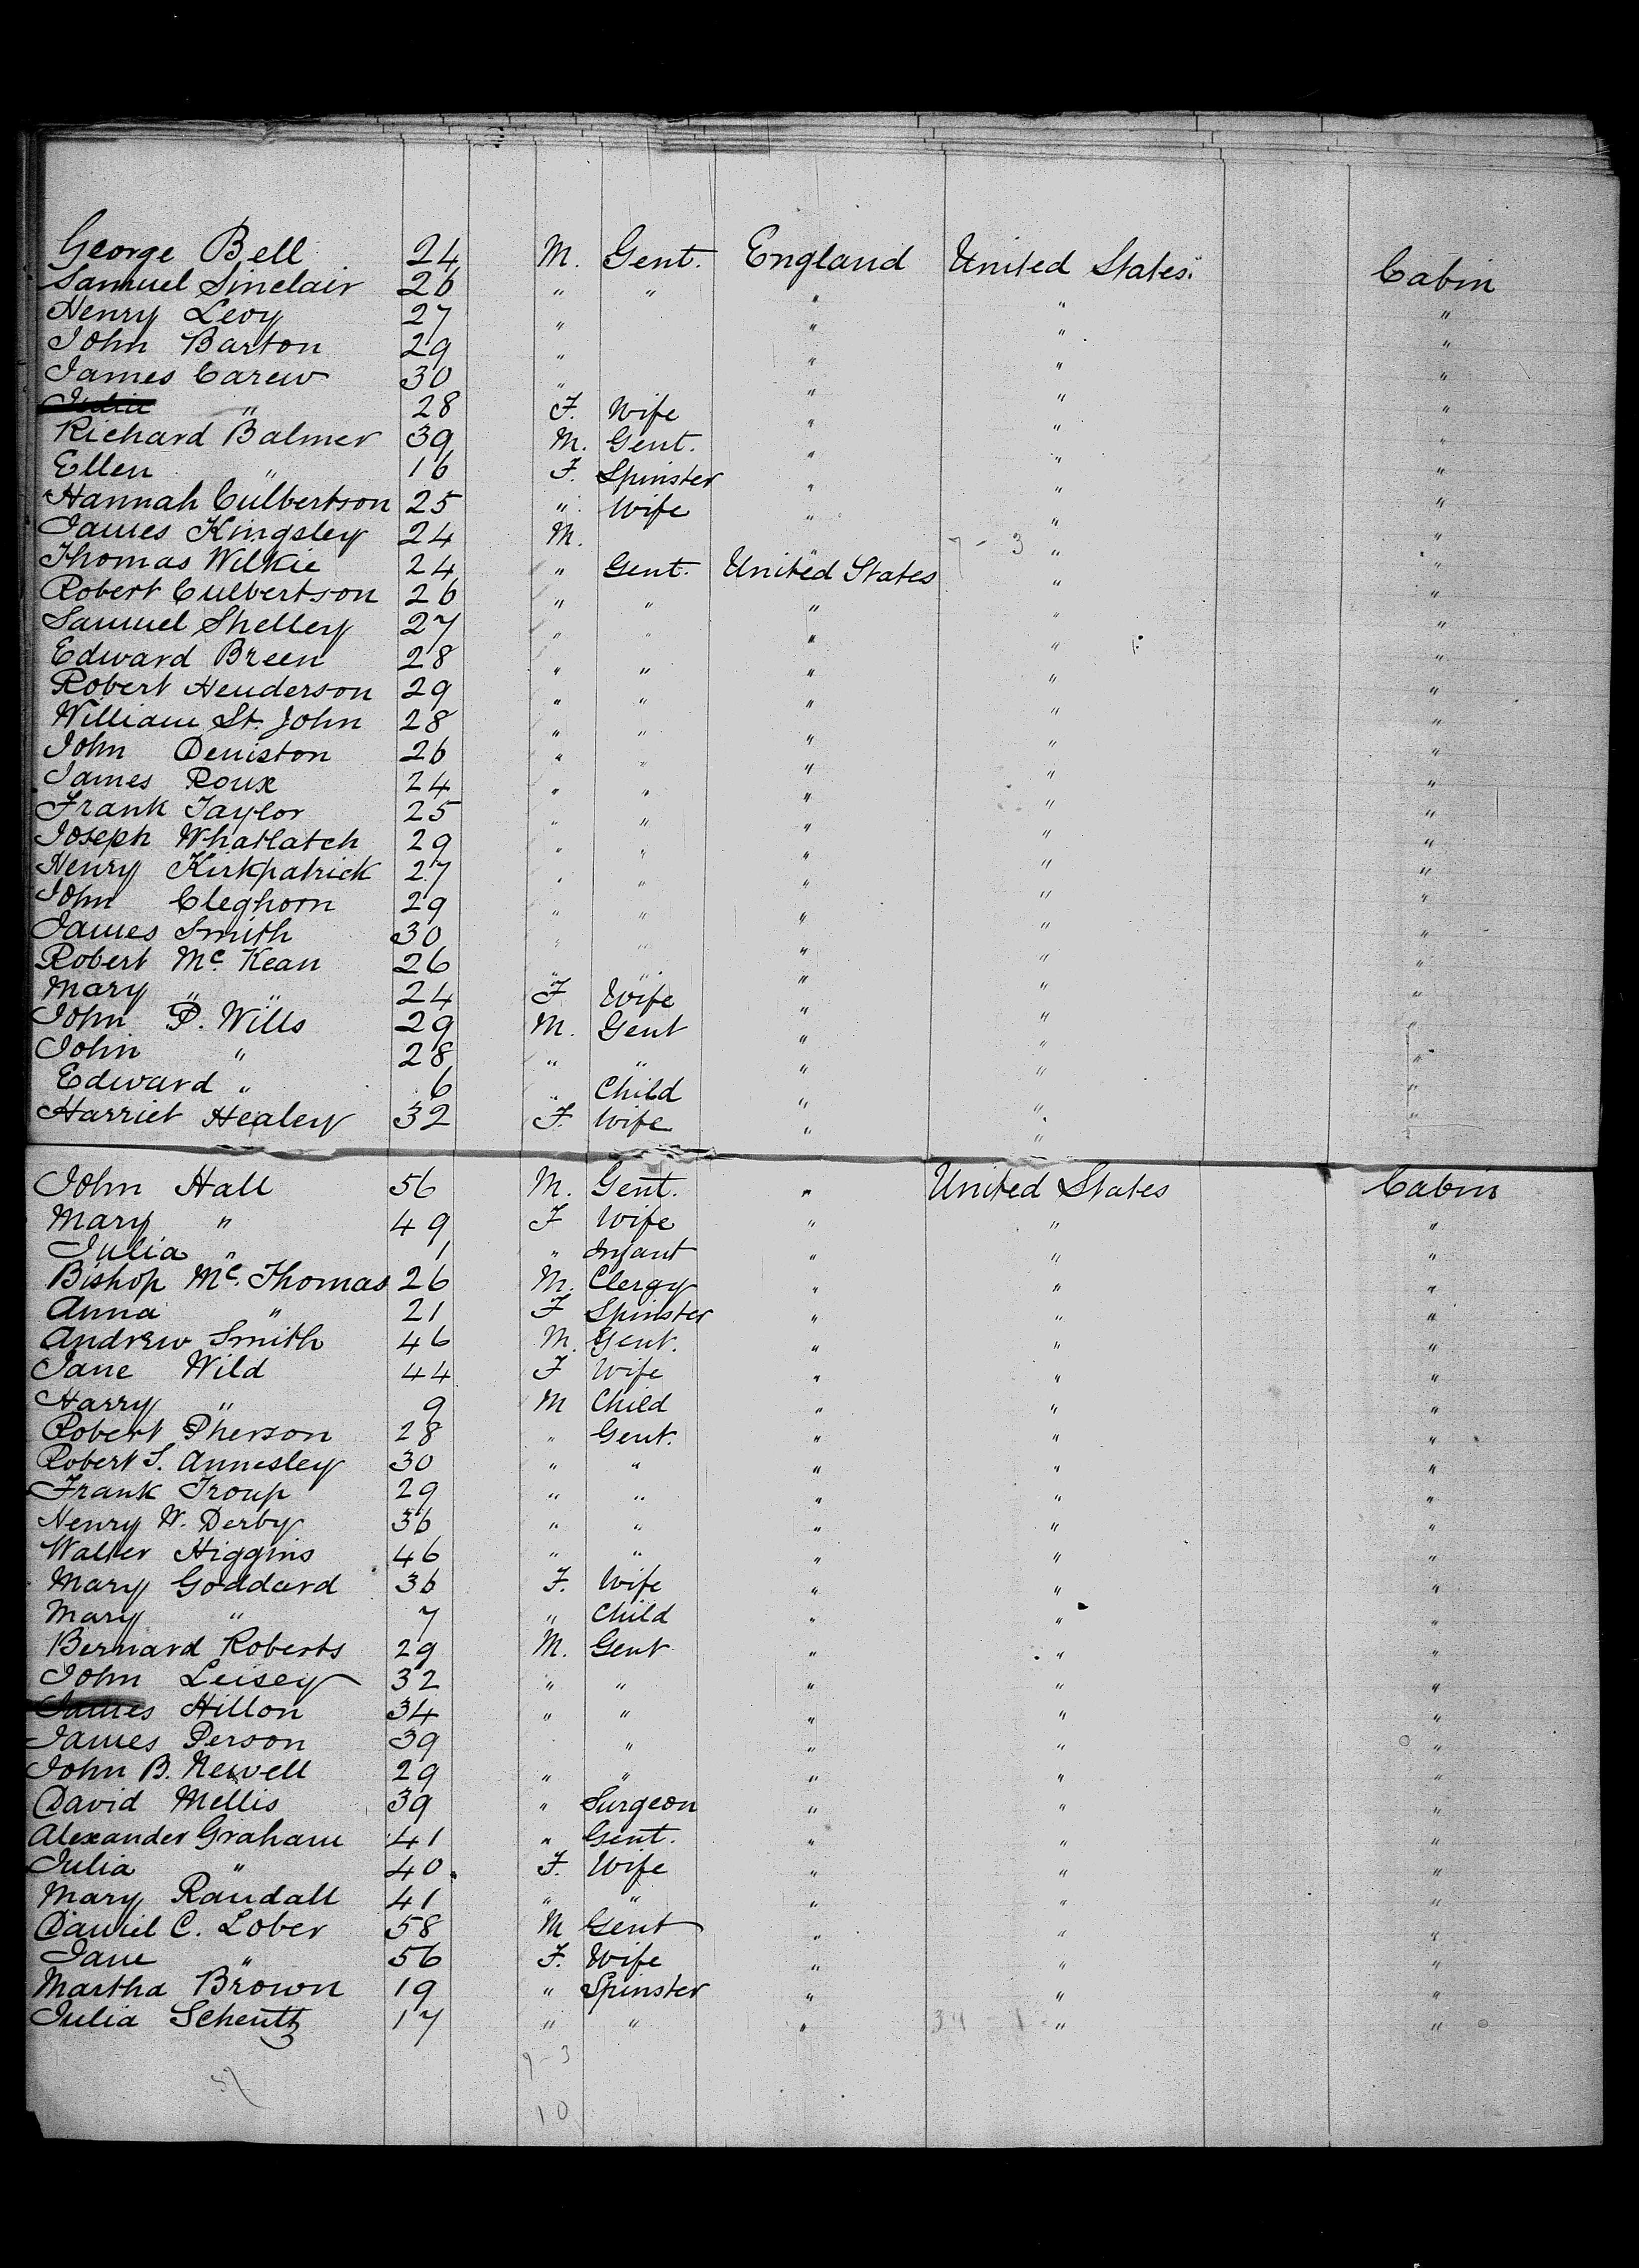 George Bell 24 M. Gent. England United States. Cabin
Samuel Sinclair 26 " " " " "
Henry Levy 27 " " " "
John Barton 29 " " " "
James Carew 30 " " " "
Julia " 28 F. Wife " " "
Richard Balmer 39 M. Gent. " " "
Ellen " 16 F. Spinster " " "
Hannah Culbertson 25 " Wife " " "
James Kingsley 24 M. " 7 - 3 " "
Thomas Wilkie 24 " Gent. United States " "
Robert Culbertson 26 " " " " "
Samuel Shelley 27 " " " " "
Edward Breen 28 " " " " "
Robert Henderson 29 " " " " "
William St. John 28 " " " " "
John Deniston 26 " " " " "
James Roux 24 " " " " "
Frank Taylor 25 " " " " "
Joseph Whatlatch 29 " " " " "
Henry Kirkpatrick 27 " " " " "
John Cleghorn 29 " " " " "
James Smith 30 " " " " "
Robert Mc. Kean 26 " " " " "
Mary " " 24 F Wife " " "
John P. Wills 29 M. Gent " " "
John " 28 " " " " "
Edward " 6 " Child " " "
Harriet Healey 32 F. Wife " "
John Hall 56 M. Gent. " United States Cabin
Mary " 49 F Wife " " "
Julia " 1 " Infant " " "
Bishop Mc. Thomas 26 M. Clergy " " "
Anna " 21 F Spinster " " "
Andrew Smith 46 M. Gent. " " "
Jane Wild 44 F Wife " " "
Harry " 9 M Child " " "
Robert Pherson 28 " Gent. " " "
Robert S. Annesley 30 " " " " "
Frank Troup 29 " " " " "
Henry W. Derby 36 " " " " "
Walter Higgins 46 " " " " "
Mary Goddard 36 F. Wife " " "
Mary " 7 " Child " " "
Bernard Roberts 29 M. Gent " " "
John Leisey 32 " " " " "
James Hillon 34 " " " " "
James Person 39 " " " "
John B. Newell 29 " " " " "
David Mellis 39 " Surgeon " " "
Alexander Graham 41 " Gent. " " "
Julia " 40 F. Wife " " "
Mary Randall 41 " " " " "
Daniel C. Lober 58 M Gent " " "
Jane " 56 F. Wife " " "
Martha Brown 19 " Spinster " " "
Julia Scheutz 17 " " " 34 - 1 " "
9 - 3
57
10